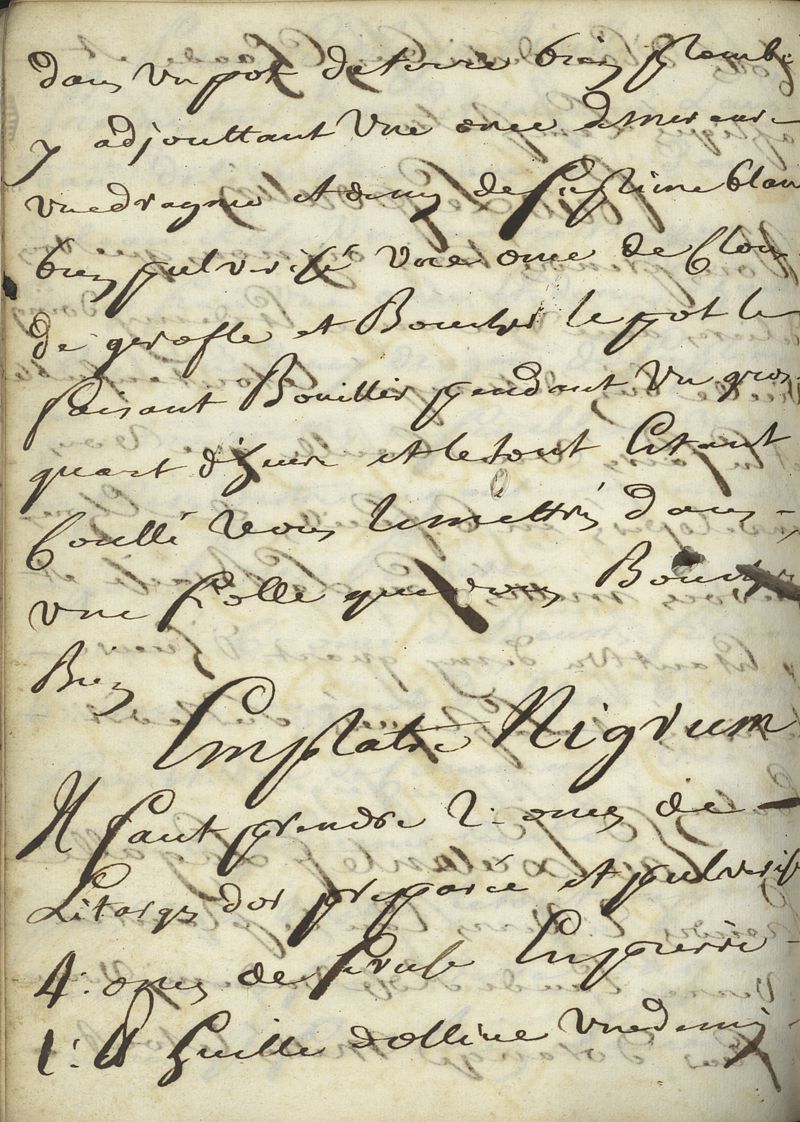 dans un pot de terre bien plombé
y adjouttant Une once de mercure
une dragme et demy de sublimé blan
bien pulverisé Une once de Clou
de gerofle et Bouchés le pot le
faisant Bouillir pendant Un gros
quart d'heure et le tout Estant
Coullé vous le mettrés dans
une fiolle que vous Bouchés
Bien
Emplatre Nigrum
Il faut prendre 2. onces de
Litarge dor preparée et pulverisé
4. onces de Ceruse En pierre
1. ℔ huille dollive Une demy